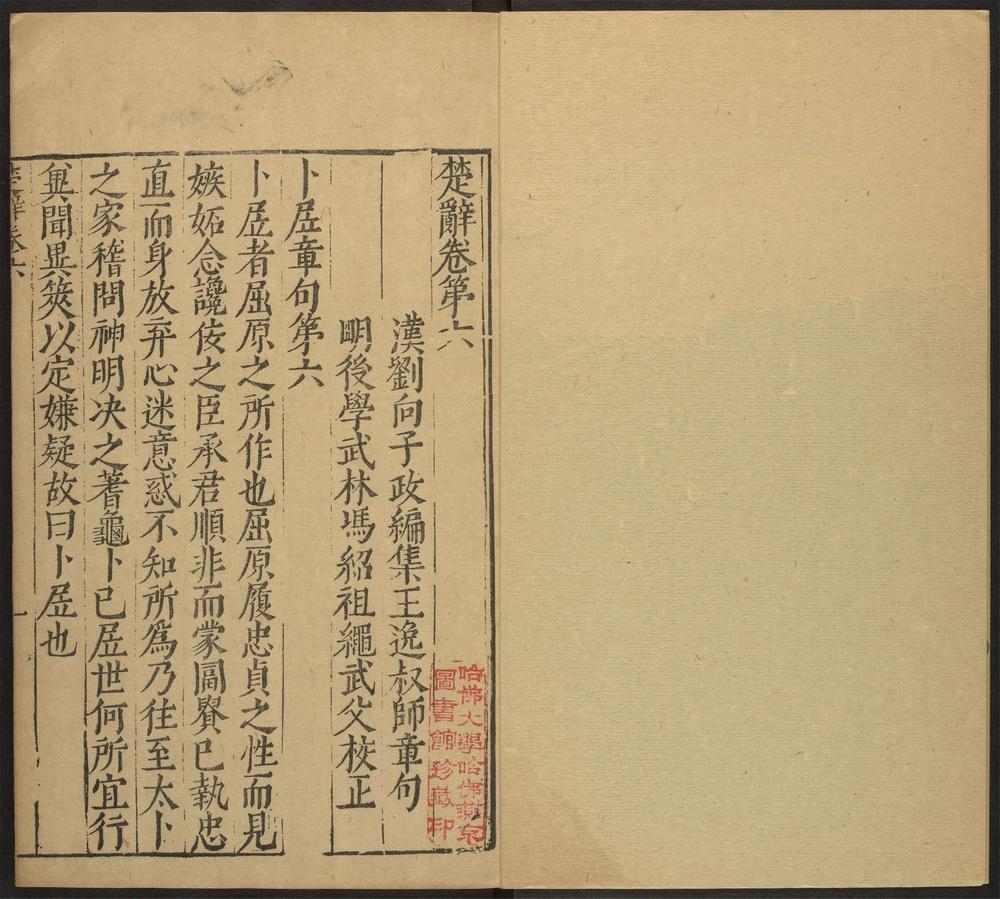 楚辭卷第六
漢劉向子政編集王逸叔師章句
明後學武林馮紹祖繩武父校正
卜居章句第六
卜居者屈原之所作也屈原履忠貞之性而見
嫉妬念讒佞之臣承君順非而蒙富貴已執忠
直而身放弃心迷意惑不知所為乃往至太卜
之家稽問神明決之蓍龜卜已居世何所宜行
兾聞異筴以定嫌疑故曰卜居也
楚辭卷六
一
哈佛大學哈佛燕京
圖書館珍藏印